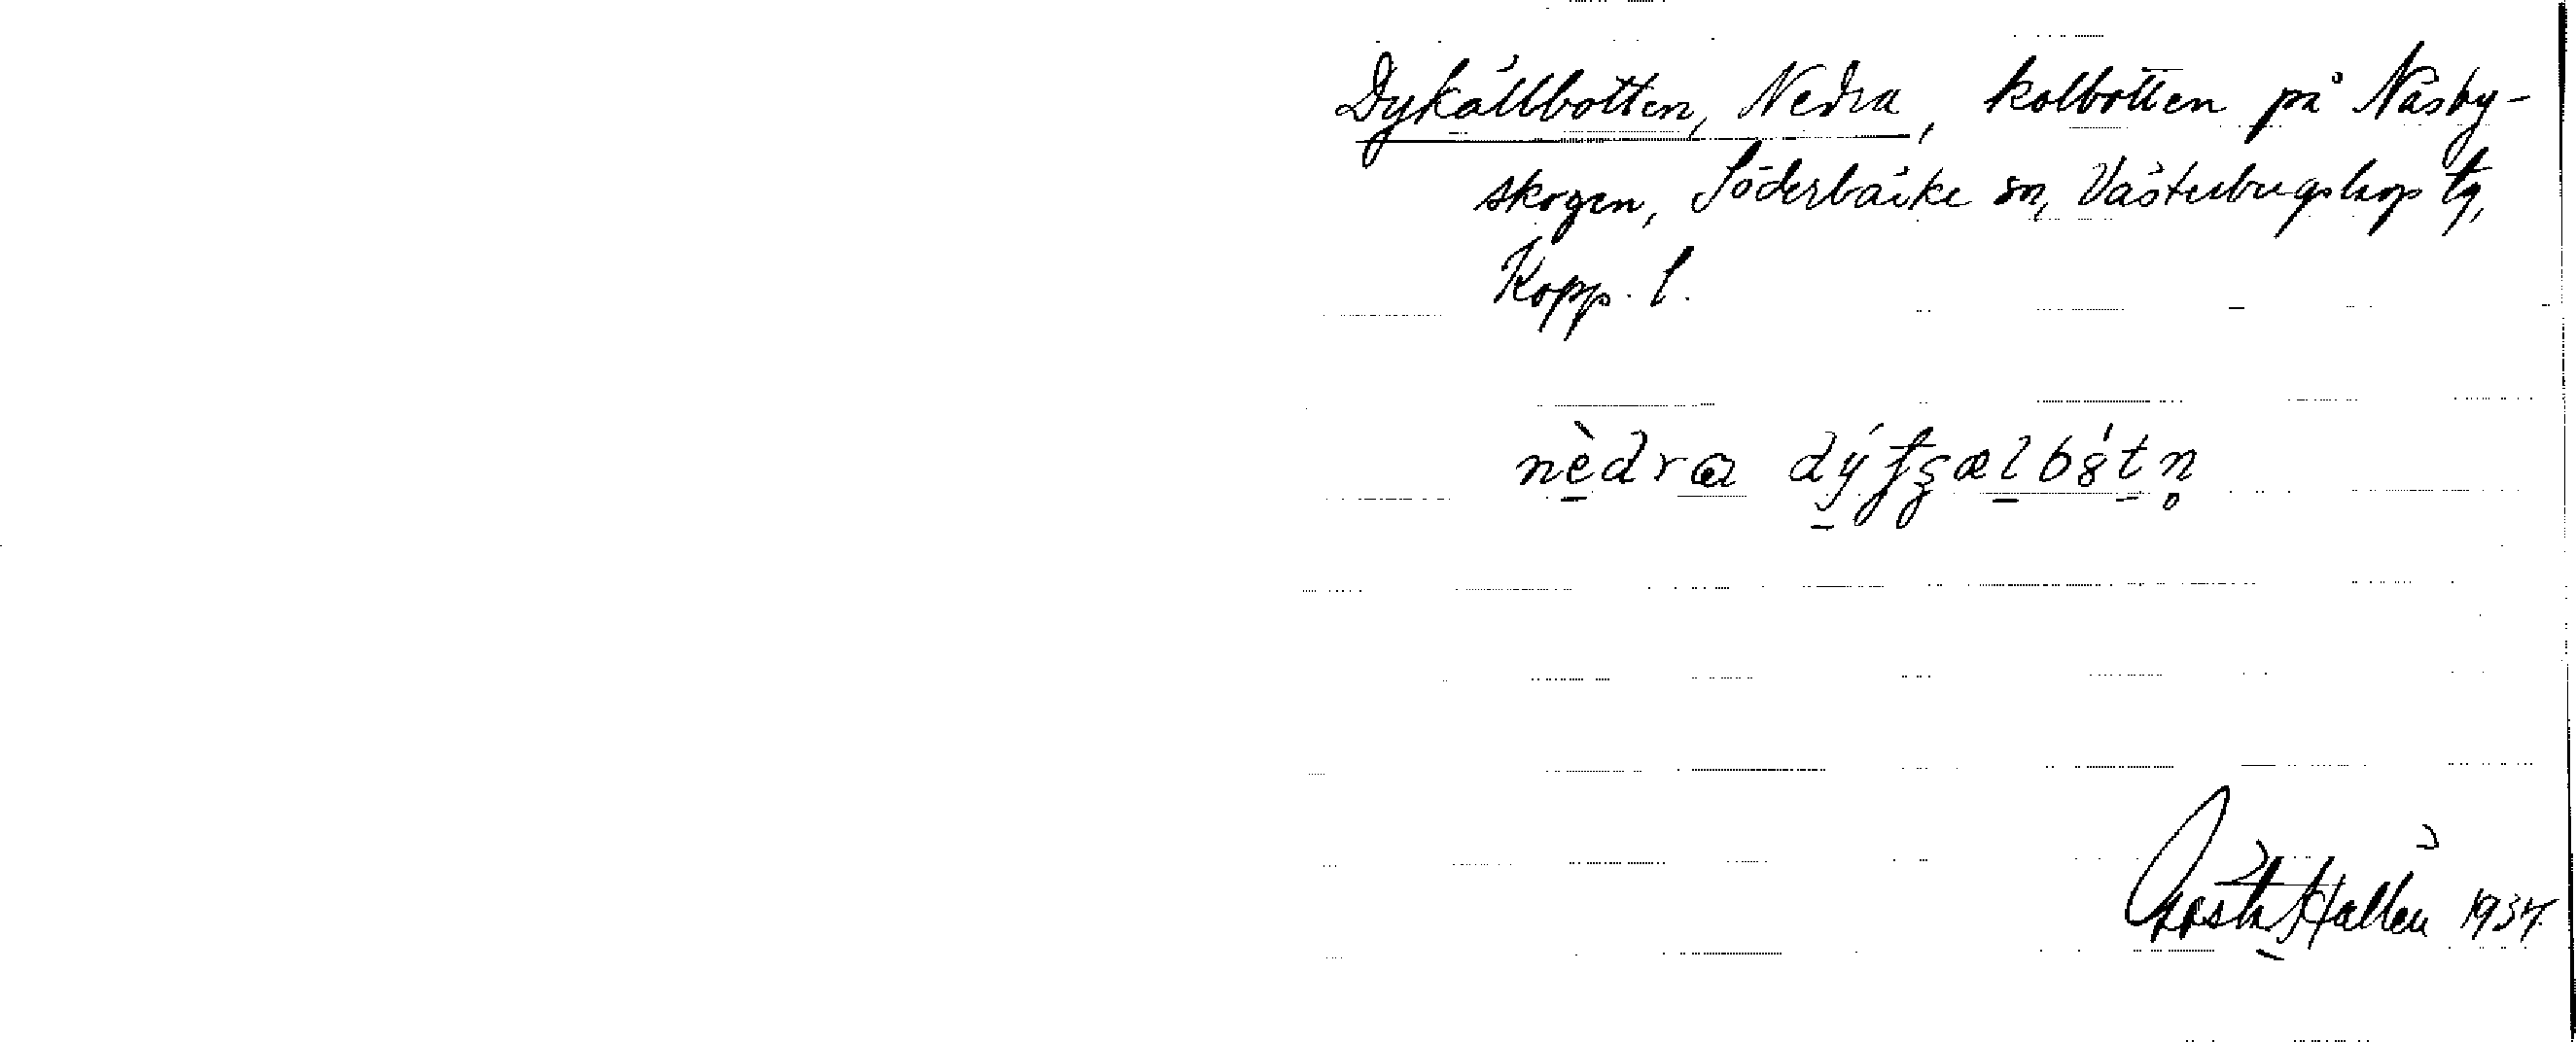 Dykällbotten, Nedra, kolbotten på Näsby-
skogen, Söderbärke sn, Västerbergslags tg,
Kopp. l.
nèdra dýtʂælbɷ́tn̥
Gösta Hallén 1934.